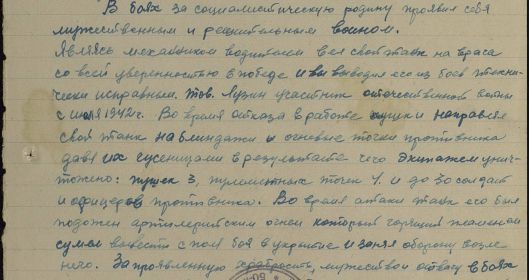 В боях за социалистическую родину проявил себя
мужественным и решительным воином.
Являясь механиком водителем вел свой танк на врага
со всей уверенностью в победе и выводил его из боев техни-
чески исправным. Тов. Лузин участник отечественной войны
с июля 1942 г. Во время отказа в работе пушки направлял
свой танк на блиндажи и огневые точки противника
давя их гусеницами в результате чего экипажем унич-
тожено: пушек 3, пулеметных точек 4. и до 30 солдат
и офицеров противника. Во время атаки танк его был
подожен артилерийским огнем который горящим пламенем
сумел вывести с поля боя в укрытие и занял оборону возле
него. За проявленную храбрость, мужество и отвагу в боях